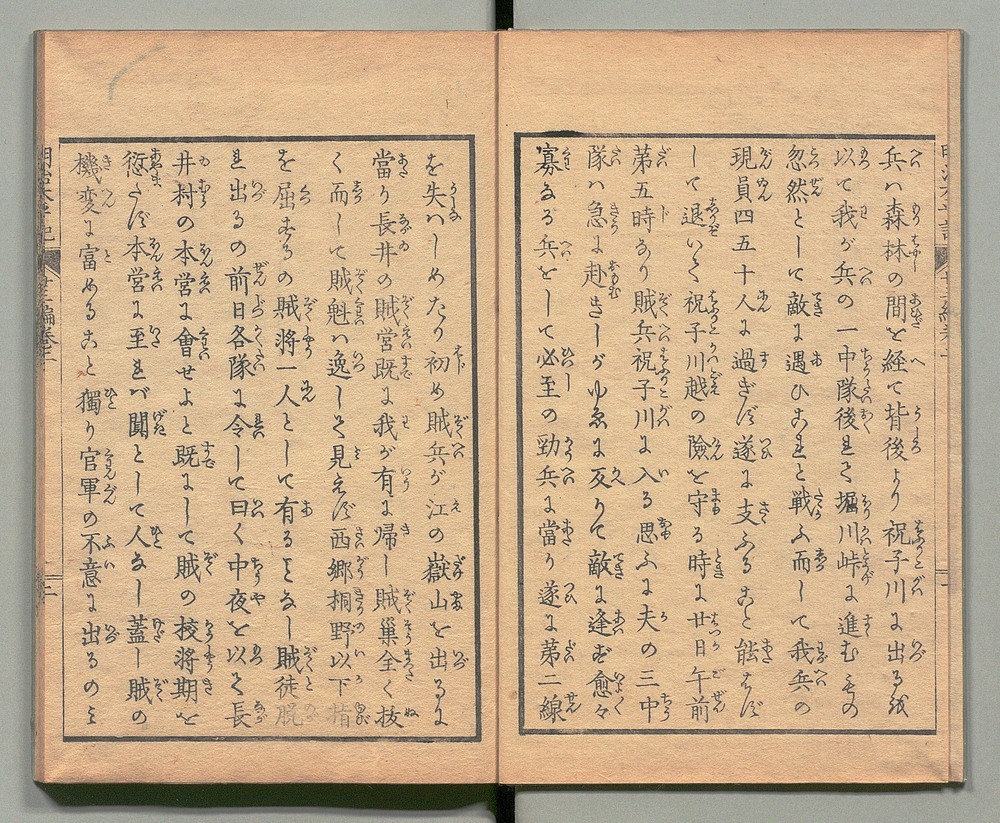 兵ハ森林の間を経て背後より祝子川に出るを
以て我が兵の一中隊後れて堀川峠に進むもの
忽然として敵に遇ひこれと戦ふ而して我兵の
現員四五十人に過ぎず遂に支ふること能はず
して退いて祝子川越の險を守る時に廿日午前
第五時なり賊兵祝子川に入る思ふに夫の三中
隊ハ急に赴きしがゆゑに反りて敵に逢はず愈々
寡なる兵をして必至の勁兵に當り遂に第二線
を失ハしめたり初め賊兵が江の嶽山を出るに
當り長井の賊営既に我が有に帰し賊巣全く抜
く而して賊魁ハ逸して見えず西郷桐野以下指
を屈するの賊将一人として有るとなし賊徒脱
れ出るの前日各隊に令して曰く中夜を以て長
井村の本営に會せよと既にして賊の校将期を
愆たず本営に至れバ闃として人なし蓋し賊の
機変に富めること獨り官軍の不意に出るのミ